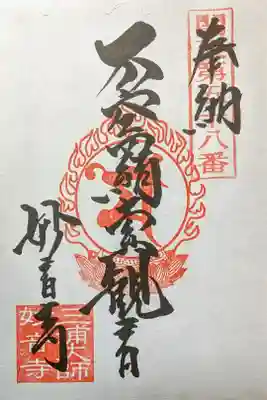 奉納
八番
不空羂索観音
妙音寺
三浦大師
妙音寺